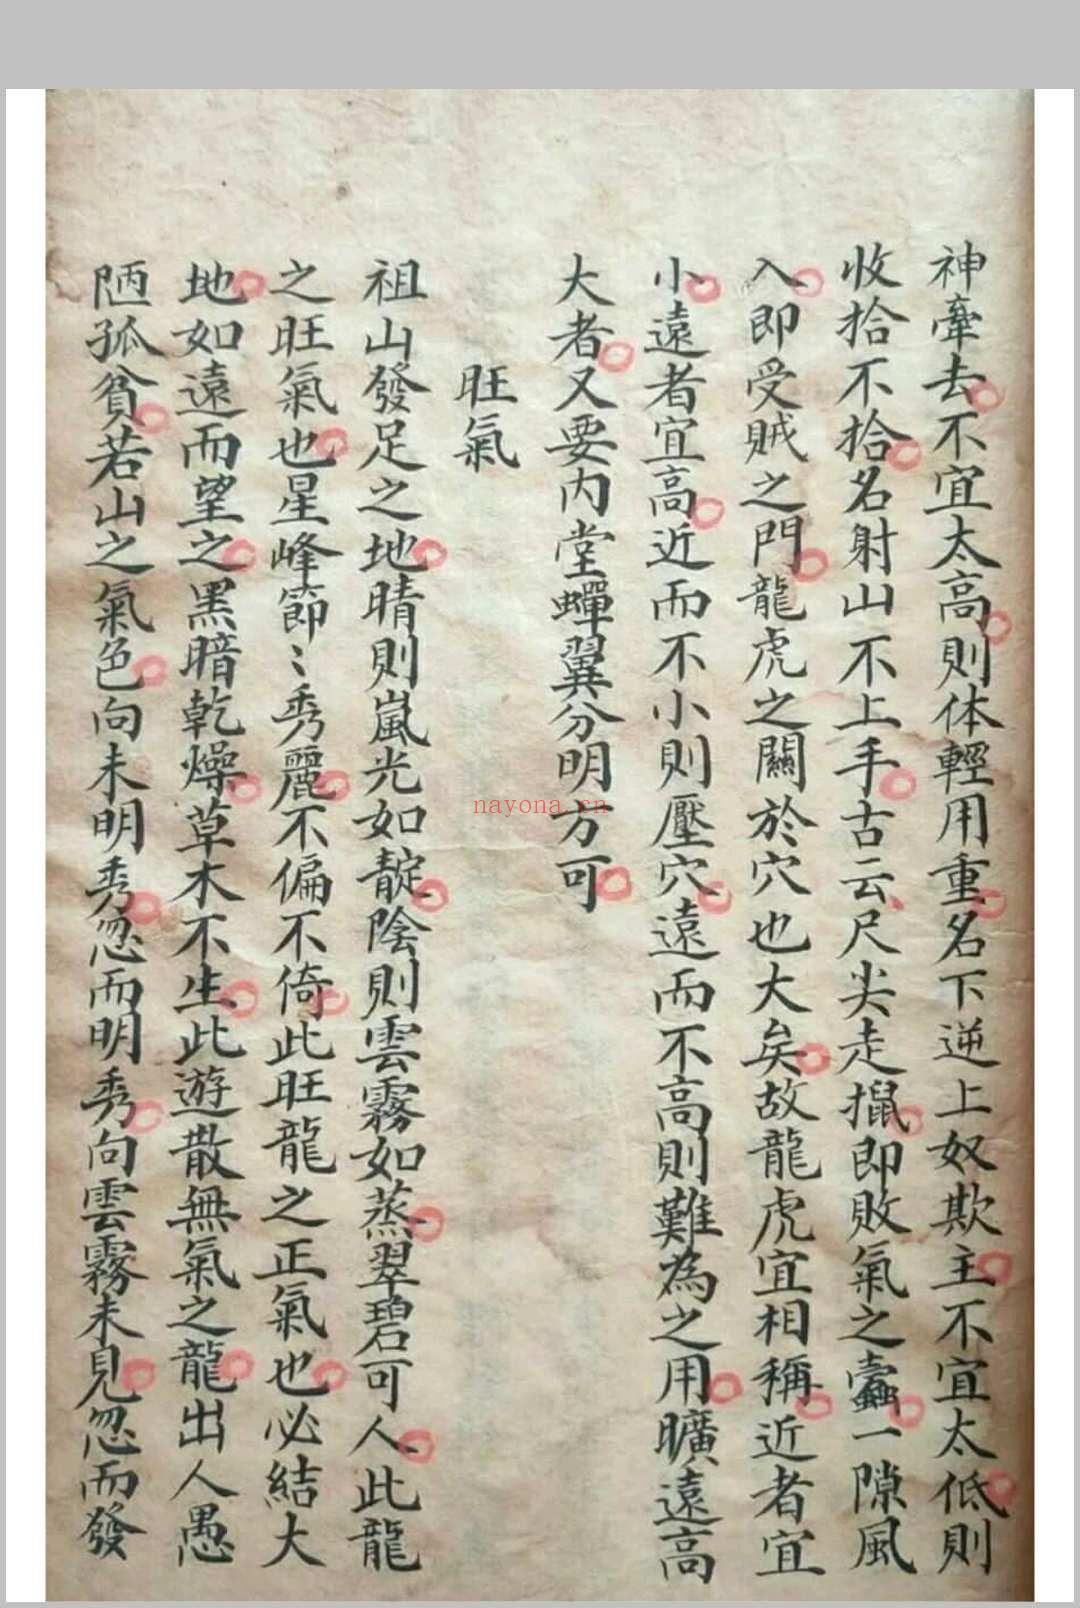 神牽去不宜太高則体輕用重名下逆上奴欺主不宜太低則
收拾不拾名射山不上手古云尺尖走擸即敗氣之蠹一隙風
入即受賊之門龍虎之關於穴也大矣故龍虎宜相稱近者宜
小遠者宜高近而不小則壓穴遠而不高則難為之用曠遠高
大者又要內堂蟬翼分明方可
旺氣
祖山發足之地晴則嵐光如靛陰則雲霧如蒸翠碧可人此龍
之旺氣也星峰節〻秀麗不偏不倚此旺龍之正氣也必結大
地如遠而望之黑暗乾燥草木不生此遊散無氣之龍出人愚
陋孤貧若山之氣色向未明秀忽而明秀向雲霧未見忽而發
nayona.cn